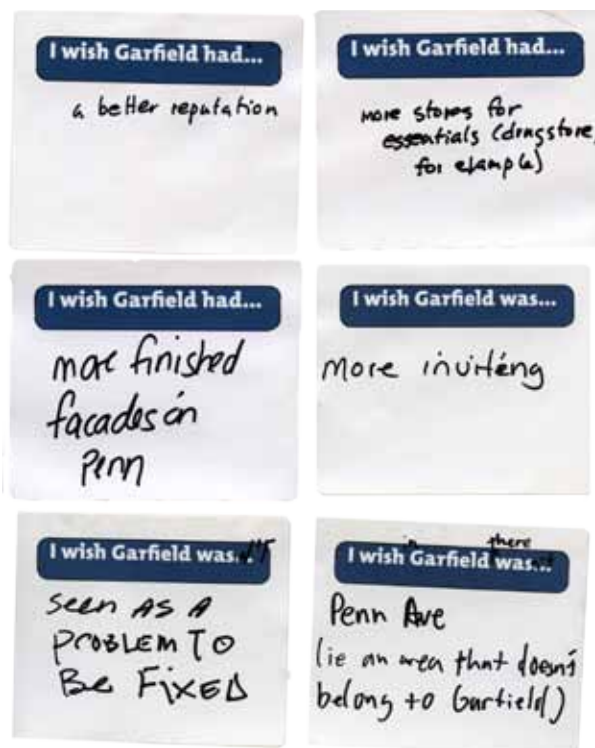 I wish Garfield had...
a better reputation
I wish Garfield had...
more stores for
essentials (drugstore,
for example)
I wish Garfield had...
more finished
facades on
Penn
I wish Garfield was...
more inviting
I wish Garfield was...n't
seen AS A
PROBLEM TO
Be FIXED
there
I wish Garfield was...
Penn Ave
(ie an area that doesn't
belong to Garfield)